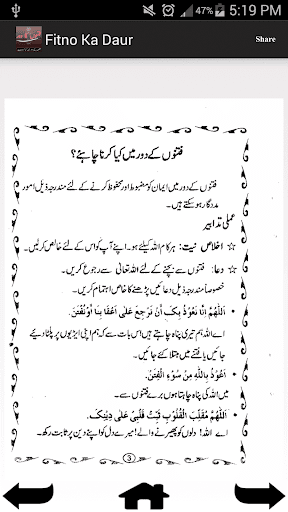 47% 5:19 PM
Fitno Ka Daur
Share
فتنوں کے دور میں کیا کرنا چاہئے؟
فتنوں کے دور میں ایمان کو مضبوط اور محفوظ کرنے کے لئے مندرجہ ذیل امور
مددگار ہوسکتے ہیں۔
عملی تدابیر
☆ اخلاص نیت: ہر کام اللہ کیلئے ہو۔ اپنے آپ کو اس کے لئے خالص کرلیں۔
☆ دعا: فتنوں سے بچنے کے لئے اللہ تعالی سے رجوع کریں۔
خصوصاً مندرجہ ذیل دعائیں پڑھنے کا خاص اہتمام کریں۔
• اَللّٰهُمَّ اِنَّا نَعُوْذُ بِكَ اَنْ نَرْجِعَ عَلٰى اَعْقَابِنَا اَوْ نُفْتَنَ.
اے اللہ ہم تیری پناہ چاہتے ہیں اس بات سے کہ ہم اپنی ایڑیوں پر پلٹا دیئے
جائیں یا فتنے میں مبتلا کئے جائیں۔
• اَعُوْذُ بِاللّٰهِ مِنْ سُوْءِ الْفِتَنِ.
میں اللہ کی پناہ چاہتا ہوں برے فتنوں سے۔
• اَللّٰهُمَّ مُقَلِّبَ الْقُلُوْبِ ثَبِّتْ قَلْبِىْ عَلٰى دِيْنِكَ.
اے اللہ! دلوں کو پھیرنے والے! میرے دل کو اپنے دین پر ثابت رکھ۔
3